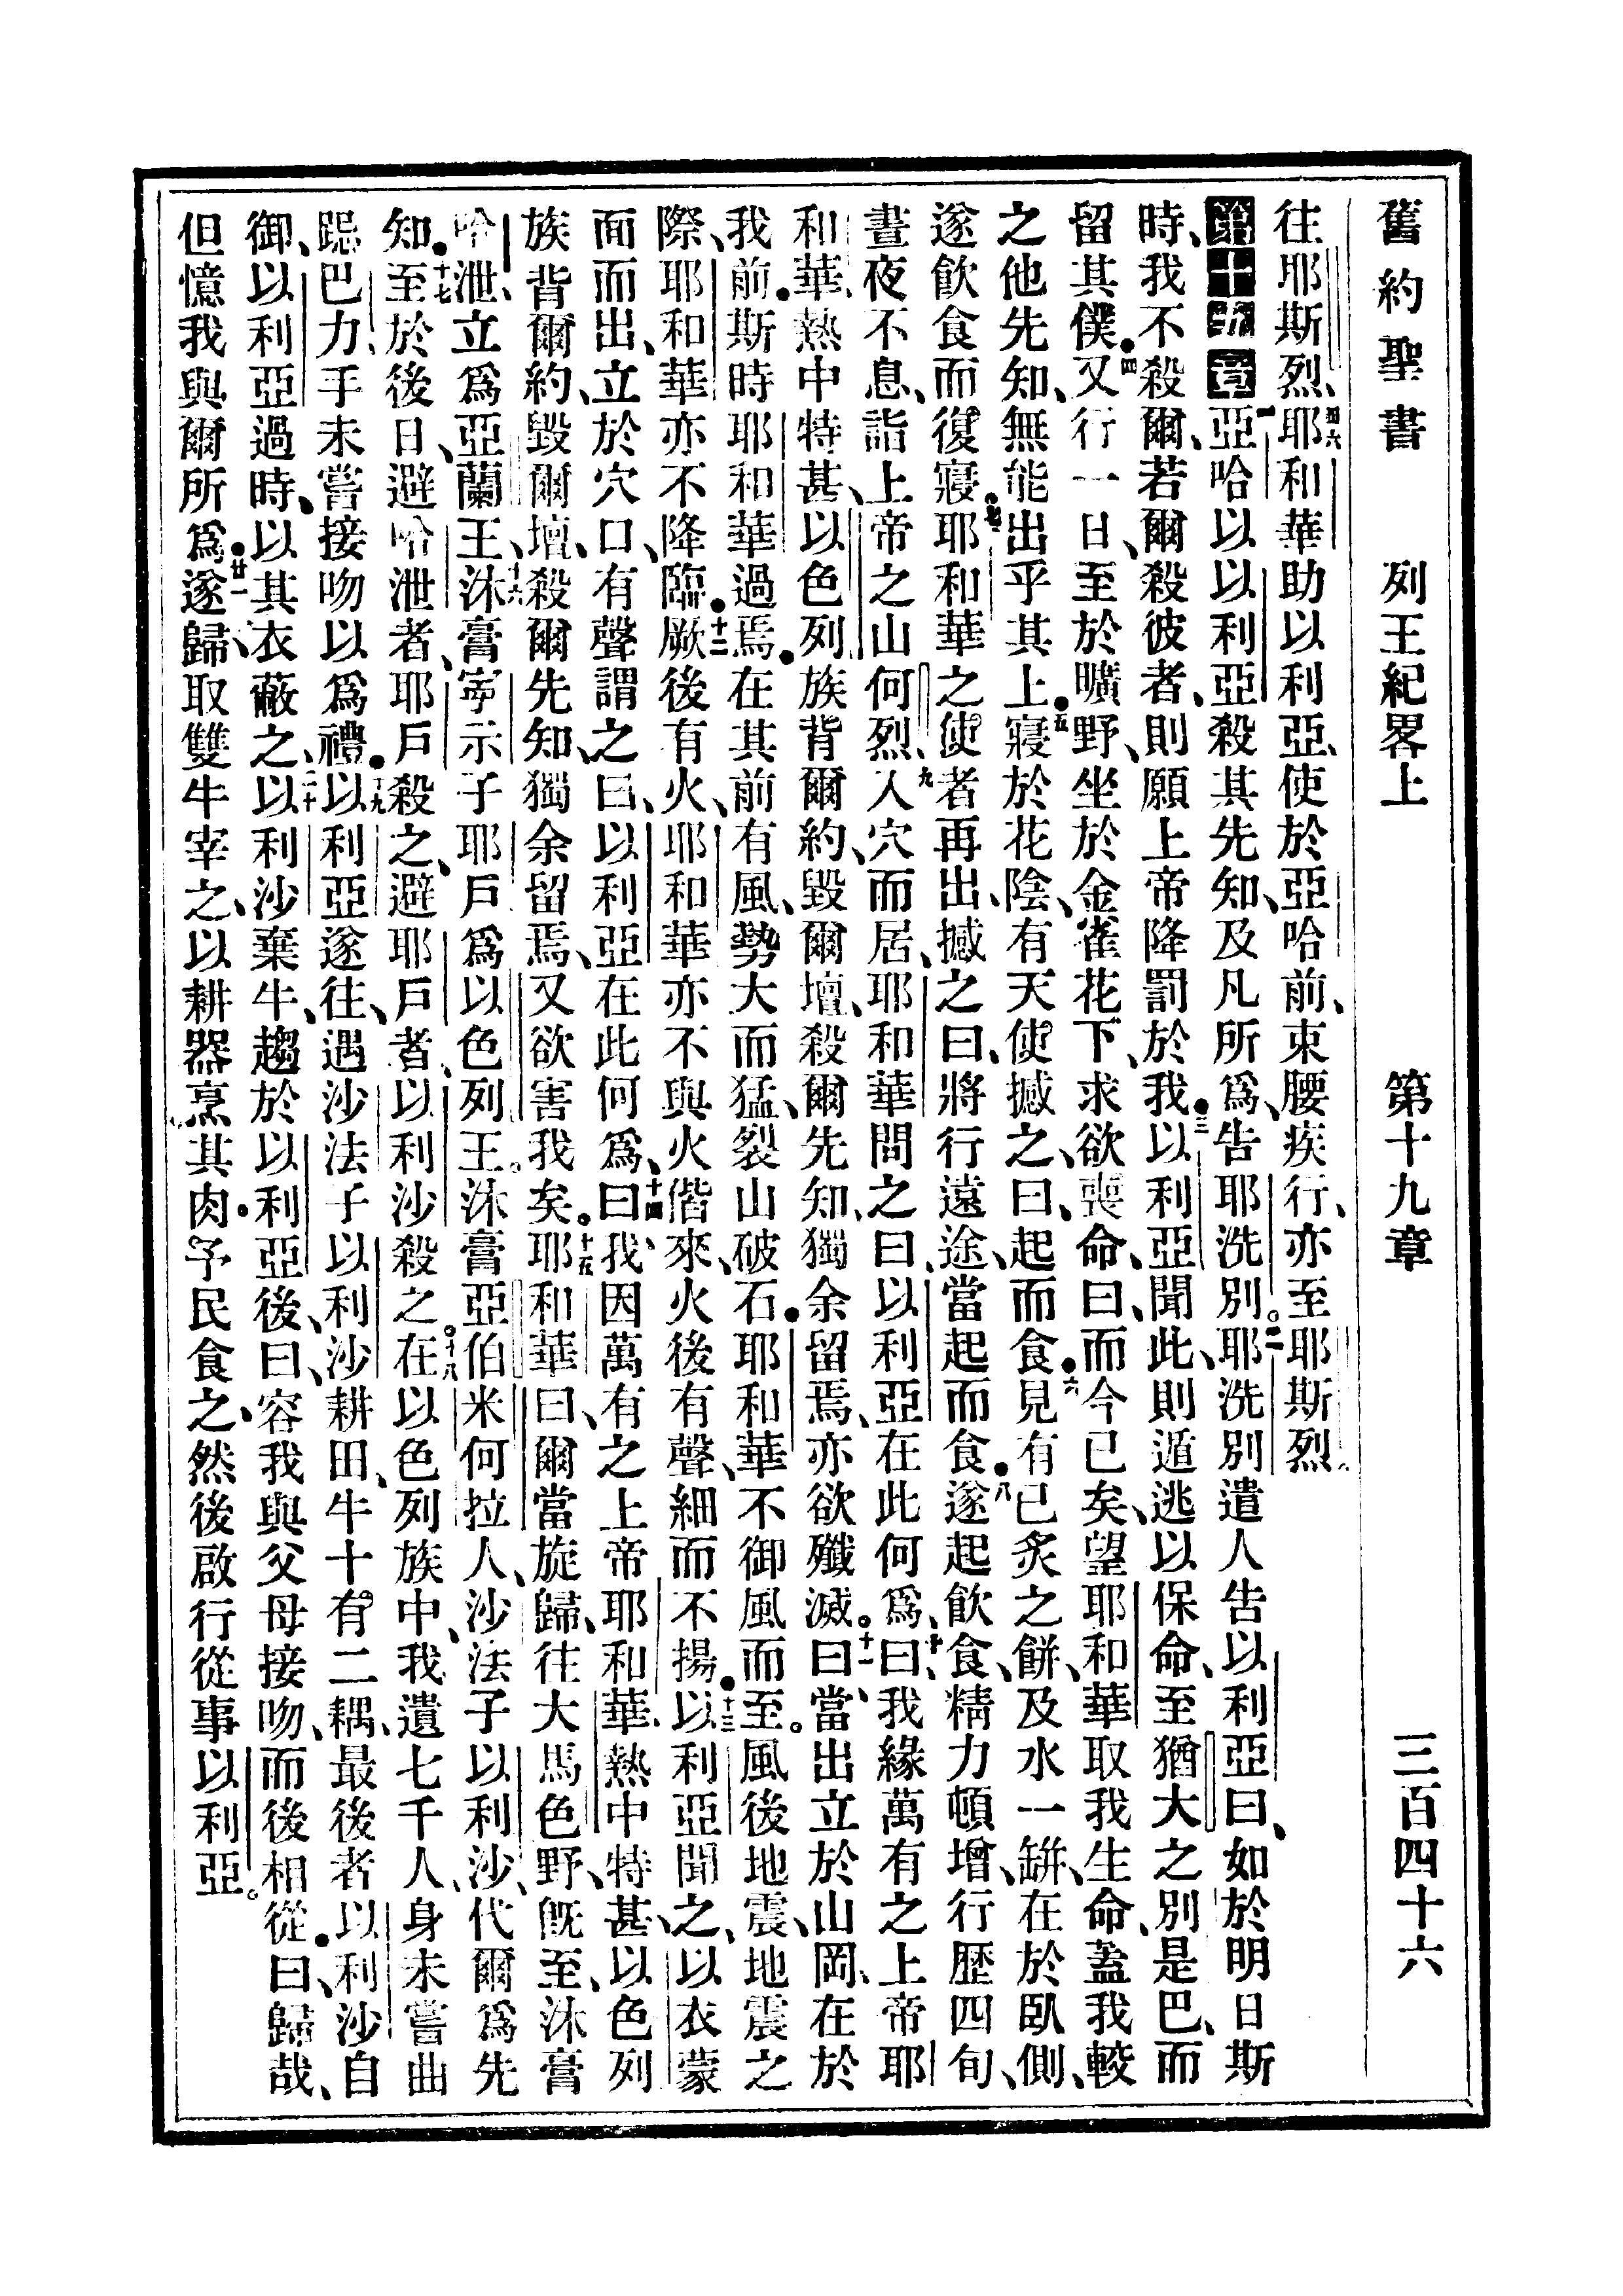 舊約聖書　列王紀畧上　第十九章　三百四十六
往耶斯烈、四六耶和華助以利亞、使於亞哈前、束腰疾行、亦至耶斯烈。
第十九章 一亞哈以以利亞殺其先知、及凡所爲、告耶洗別。二耶洗別遣人告以利亞曰、如於明日斯
時、我不殺爾、若爾殺彼者、則願上帝降罰於我。三以利亞聞此、則遁逃以保命、至猶大之別是巴、而
留其僕。四又行一日、至於曠野、坐於金雀花下、求欲喪命、曰、而今已矣、望耶和華取我生命、蓋我較
之他先知、無能出乎其上。五寢於花陰、有天使撼之、曰、起而食。六見有已炙之餅、及水一缾、在於臥側、
遂飲食而復寢。七耶和華之使者再出、撼之曰、將行遠途、當起而食。八遂起飲食、精力頓增、行歷四旬、
晝夜不息、詣上帝之山何烈、九入穴而居、耶和華問之曰、以利亞在此何爲、十曰、我緣萬有之上帝耶
和華、熱中特甚、以色列族背爾約、毀爾壇、殺爾先知、獨余留焉、亦欲殲滅。十一曰、當出立於山岡、在於
我前。斯時耶和華過焉。在其前有風、勢大而猛、裂山破石。耶和華不御風而至。風後地震、地震之
際、耶和華亦不降臨。十二厥後有火、耶和華亦不與火偕來、火後有聲、細而不揚。十三以利亞聞之、以衣蒙
面而出、立於穴口、有聲謂之曰、以利亞在此何爲、十四曰、我因萬有之上帝耶和華、熱中特甚、以色列
族背爾約、毀爾壇、殺爾先知、獨余留焉、又欲害我矣。十五耶和華曰、爾當旋歸、往大馬色野、旣至、沐膏
哈泄、立爲亞蘭王、十六沐膏寗示子耶戶爲以色列王。沐膏亞伯米何拉人、沙法子以利沙、代爾爲先
知。十七至於後日、避哈泄者、耶戶殺之、避耶戶者、以利沙殺之。十八在以色列族中、我遺七千人、身未嘗曲
跽巴力、手未嘗接吻以爲禮。十九以利亞遂往、遇沙法子以利沙耕田、牛十有二耦、最後者以利沙自
御、以利亞過時、以其衣蔽之、二十以利沙棄牛、趨於以利亞後、曰、容我與父母接吻、而後相從。曰、歸哉、
但憶我與爾所爲。廿一遂歸、取雙牛宰之、以耕器烹其肉。予民食之、然後啟行從事以利亞。